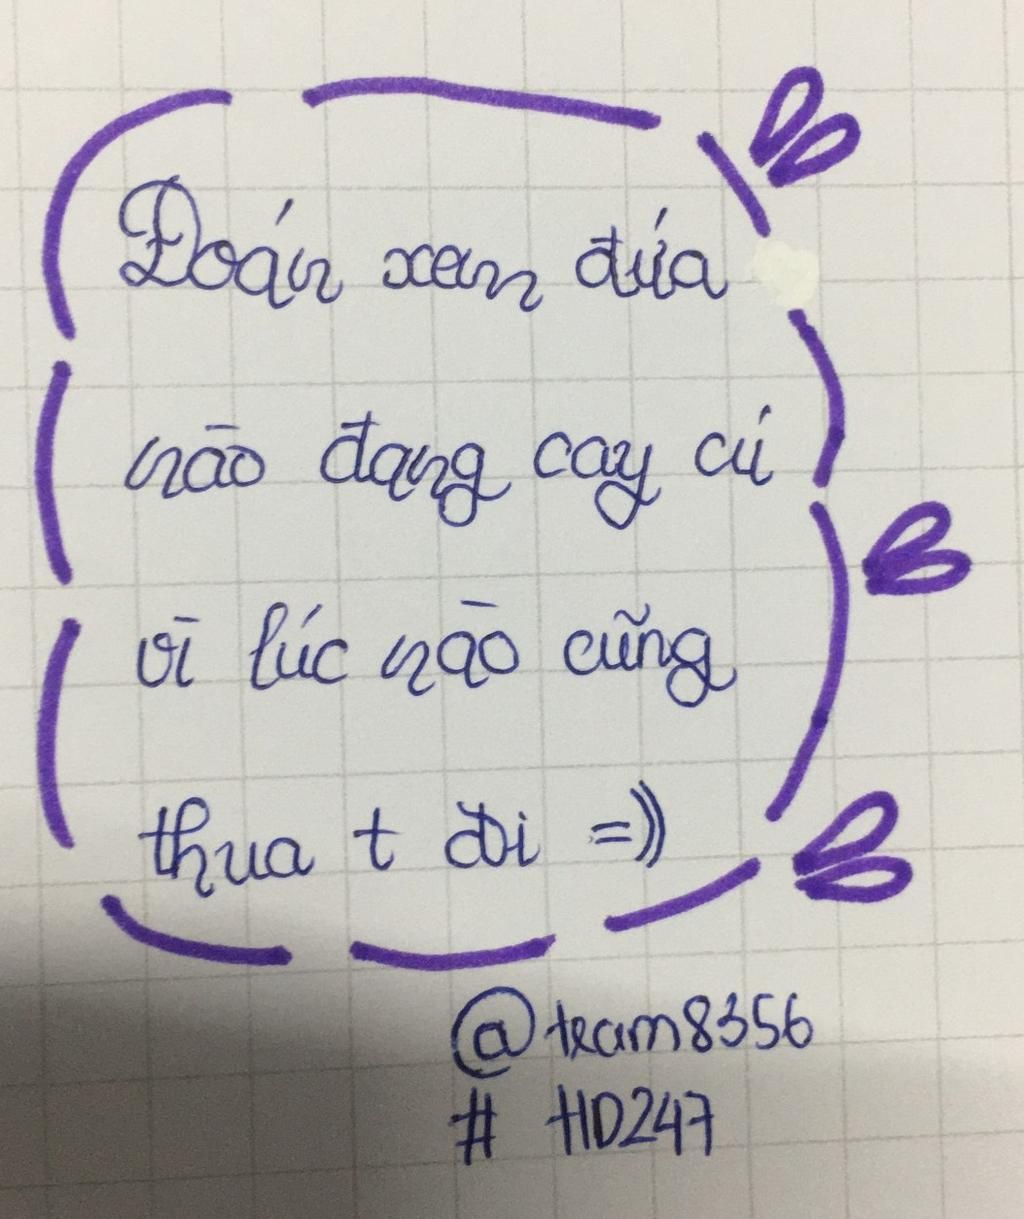 Đoán xem đứa
nào đang cay cú
vì lúc nào cũng
thua t đòi =))
@team8356
# HD247